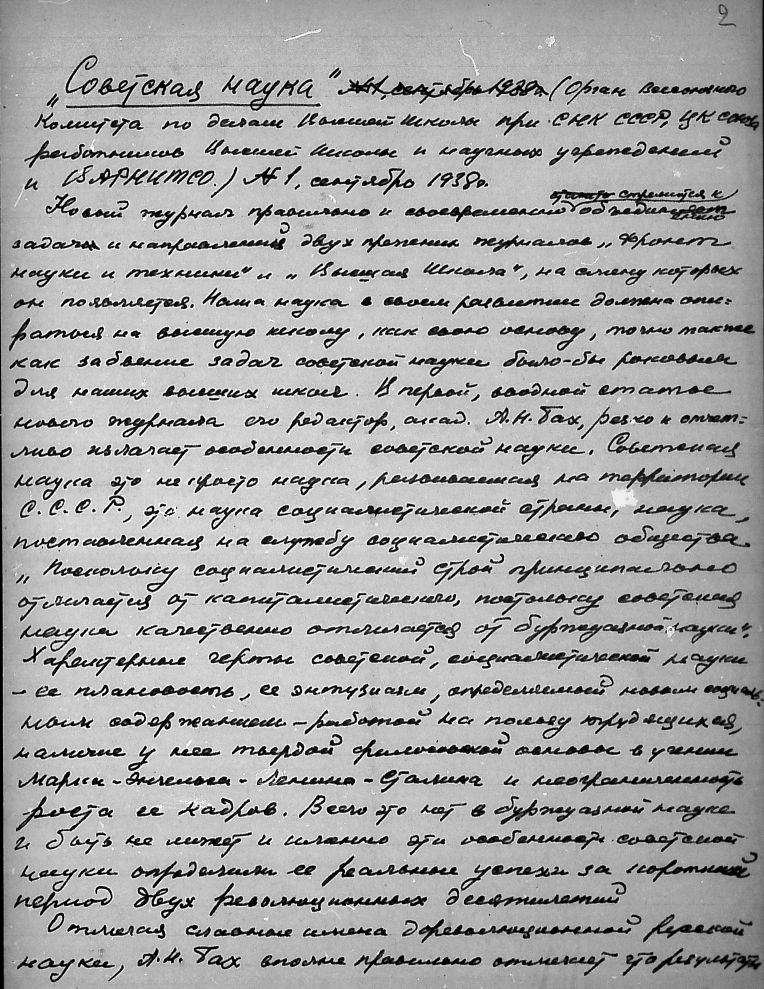 2
„Советская наука" №1, сентябрь 1938г. (Орган Всесоюзного
Комитета по делам Высшей Школы при СНК СССР, ЦК союза
работников Высшей Школы и научных учреждений
и ВАРНИТСО.) №1, сентябрь 1938г.
стремится к
Новый журнал правильно и своевременно объединению
задач и направлений двух прежних журналов „Фронт
науки и техники" и „Высшая Школа", на смену которых
он появляется. Наша наука в своем развитии должна опи-
раться на высшую школу, как свою основу, точно также
как забвение задач советской науки было-бы роковым
для наших высших школ. В первой, вводной статье
нового журнала его редактор, акад. А.Н. Бах, резко и отчет-
ливо излагает особенности советской науки. Советская
наука это не просто наука, развиваемая на территории
С.С.С.Р., это наука социалистической страны, наука,
поставленная на службу социалистического общества.
„Поскольку социалистический строй принципиально
отличается от капиталистического, постольку советская
наука качественно отличается от буржуазной науки".
Характерные черты советской, социалистической науки
– ее плановость, ее энтузиазм, определяемый новым социаль-
ным содержанием – работой на пользу трудящихся,
наличие у нее твердой философской основы в учении
Маркса-Энгельса-Ленина-Сталина и неограниченность
роста ее кадров. Всего это нет в буржуазной науке
и быть не может и именно эти особенности советской
науки определили ее реальные успехи за короткий
период двух революционных десятилетий
Отмечая славные имена дореволюционной русской
науки, А.Н. Бах вполне правильно отмечает что результаты